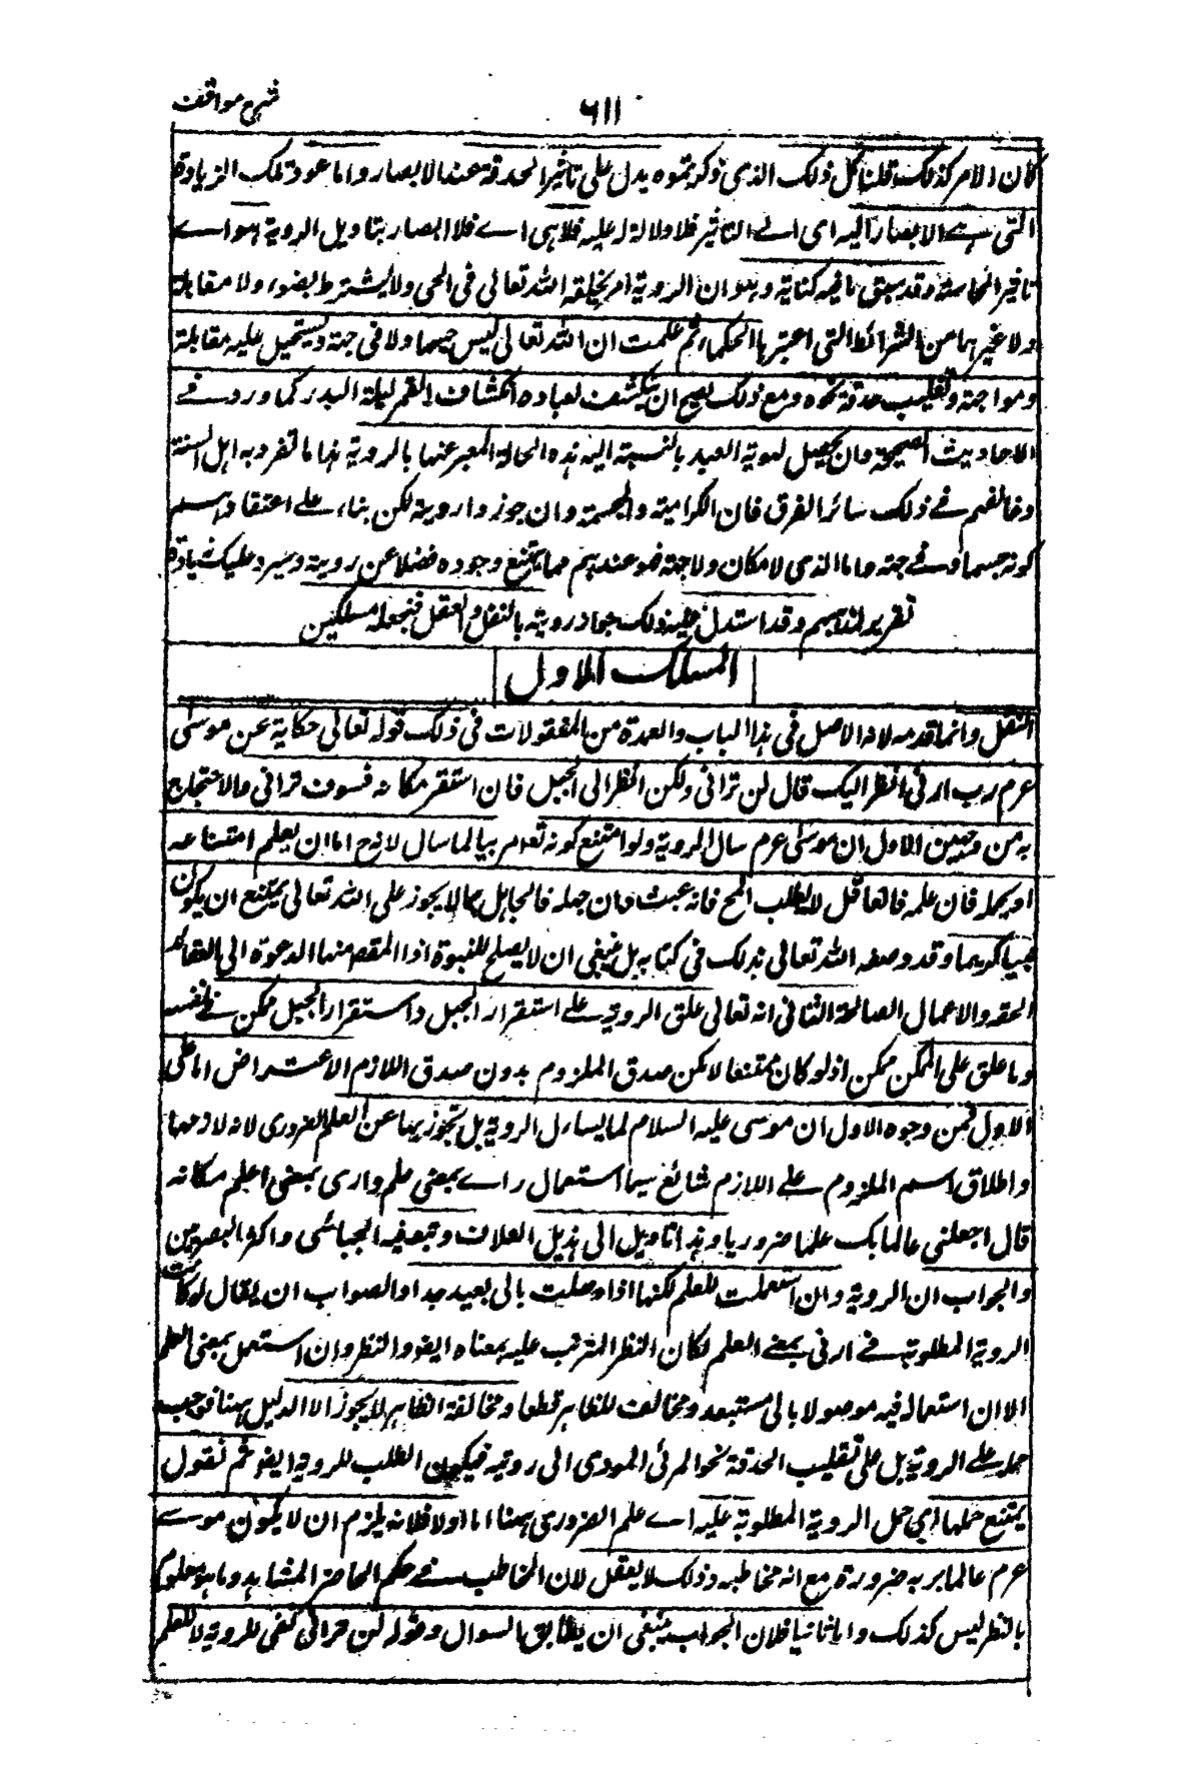 شرح مواقف
٦١١
كان الامر كذلك قلنا كل ذلك الذى ذكرتموه يدل على تاثير الحدقة عند الابصار واما عود تلك الزيادة
التى هے الابصار اليه اى الے التاثير فلا دلالة له عليه فلا هى اے فلا الابصار بتاويل الروية هو اے
تاثير الحاسة وقد سبق ما فيه كفاية وهو ان الروية امر يخلقه الله تعالى فى الحى ولا يشترط بضوء ولا مقابلة
ولا غيرهما من الشرائط التى اعتبرها الحكماء ثم علمت ان الله تعالى ليس جسما ولا فى جهة ويستحيل عليه مقابلة
ومواجهة وتقليب حدقة نحوه ومع ذلك يصح ان ينكشف لعباده انكشاف القمر ليلة البدر كما ورد فے
الاحاديث الصحيحة وان يحصل لهوية العبد بالنسبة اليه هذه الحالة المعبر عنها بالروية هذا ما تفرد به اهل السنة
وخالفهم فے ذلك سائر الفرق فان الكرامية والمجسمة وان جوزوا رويته لكن بناء علے اعتقادهم
كونه جسما وفے جهة واما الذى لا مكان ولا جهة فهو عندهم مما يمتنع وجوده فضلا عن رويته وسيرد عليك زيادة
تقرير لمذهبهم وقد استدل عليه ذلك جواز رويته بالنقل والعقل فنجعله مسلكين
المسلك الاول
النقل وانما قدمه لانه الاصل فى هذا الباب والعمدة من المنقولات فى ذلك قوله تعالى حكاية عن موسى
عرم رب ارنى انظر اليك قال لن ترانى ولكن انظر الى الجبل فان استقر مكانه فسوف ترانى والاحتجاج
به من وجهين الاول ان موسى عرم سال الروية ولو امتنع كونه تعالى مرئيا لما سال لانه ح اما ان يعلم امتناعه
او يجهله فان علمه فالعاقل لا يطلب المح فانه عبث وان جهله فالجاهل بما لا يجوز على الله تعالى يمتنع ان يكون
نبيا كليما وقد وصفه الله تعالى بذلك فى كتابه بل ينبغى ان لا يصلح للنبوة اذ المقصد منها الدعوة الى العقائد
الحقه والاعمال الصالحة الثانى انه تعالى علق الروية علے استقرار الجبل واستقرار الجبل ممكن فے نفسه
وما علق على الممكن ممكن اذ لو كان ممتنعا لامكن صدق الملزوم بدون صدق اللازم الاعتراض اما على
الاول فمن وجوه الاول ان موسى عليه السلام لما يسال الروية بل تجوز بها عن العلم الضرورى لانه لازمها
واطلاق اسم الملزوم علے اللازم شائع سيما استعمال راے بمعنى علم وارى بمعنى اعلم مكانه
قال اجعلنى عالما بك علما ضروريا وهذا تاويل ابى هذيل العلاف وتبعه فيه الجبائى واكثر البصريين
والجواب ان الروية وان استعملت للعلم لكنها اذا وصلت بالى بعيد جدا والصواب ان يقال لو كانت
الروية المطلوبة فے ارنى بمعنے العلم لكان النظر المترتب عليه بمعناه ايضو والنظر وان استعمل بمعنى العلم
الا ان استعماله فيه موصولا بالى مستبعد ومخالف للظاهر قطعا ومخالفة الظاهر لا يجوز الا لدليل ههنا فوجب
حمله علے الروية بل على تقليب الحدقة نحو المرئى المودى الى رويته فيكون الطلب للروية ايضو ثم نقول
يمتنع حملها اى حمل الروية المطلوبة عليه اے علم الضرورى ههنا اما اولا فلانه يلزم ان لا يكون موسے
عرم عالما بربه ضرورة مع انه مخاطبه وذلك لا يعقل لان المخاطب فے حكم الحاضر المشاهد وما هو معلوم
بالنظر ليس كذلك واما ثانيا فلان الجواب ينبغى ان يطابق السوال وقوله لن ترانى نفى للروية لا للعلم